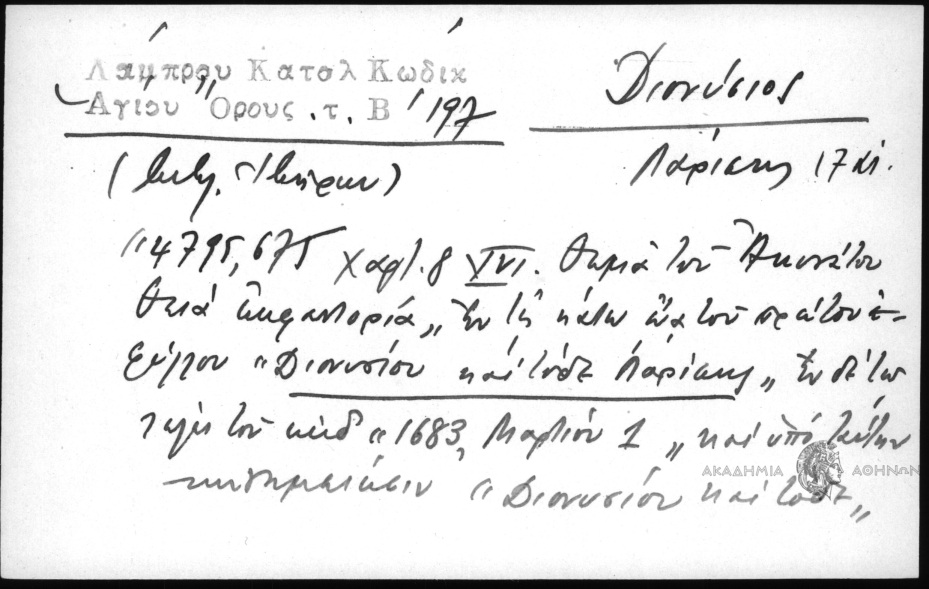 Λάμπρου Καταλ Κωδικ
Αγίου Όρους .τ. Β΄ 197
Διονύσιος
(Μον. Ἰβήρων)
Λαρίσης 17 αἰ.
"4795,675 χαρτ. 8 XVI. τοῦ
"Ἐν τῇ κάτω ᾤᾳ τοῦ πρώτου
φύλλου "Διονυσίου καὶ τόδε Λαρίσης" Ἐν δὲ τῷ
τέλει τοῦ κώδ "1683, Μαρτίου 1" καὶ ὑπὸ
"Διονυσίου καὶ τόδε"
ΑΚΑΔΗΜΙΑ ΑΘΗΝΩΝ